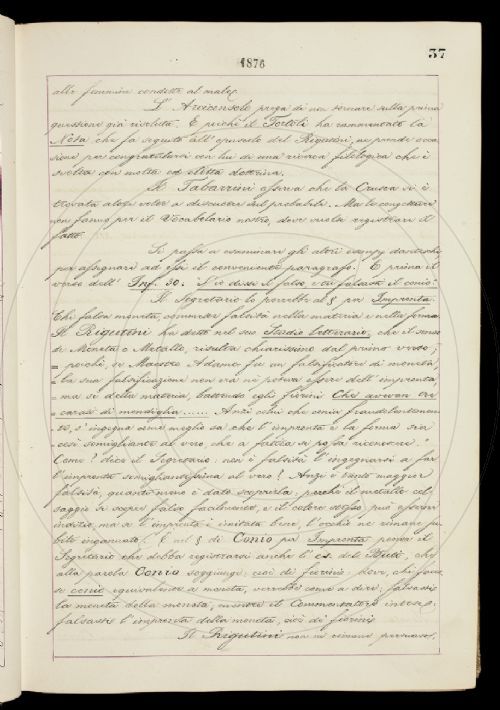 37
1876
alle femmine condotte al male.
L'Arciconsolo prega di non tornare sulla prima
quistione già risoluta. E poichè il Tortoli ha rammentato la
Nota che fa seguito all'opuscolo del Rigutini, ne prende occa
sione per congratularsi con lui di una ricerca filologica che è
svolta con molta ed eletta dottrina.
Il Tabarrini osserva che la Crusca si è
trovata altre volte a discutere sul probabile. Ma le congetture
non fanno per il Vocabolario nostro, dove vuolsi registrare il
fatto.
Si passa a esaminare gli altri esempj danteschi,
per assegnare ad essi il conveniente paragrafo. E prima il
verso dell'Inf. 30: S'io dissi il falso, e tu falsasti il conio.
Il Segretario lo porrebbe al § per Impronta.
Chi falsa moneta, commette falsità nella materia e nella forma.
Il Rigutini ha detto nel suo Studio letterario, che il senso
di Moneta o Metallo, risulta chiarissimo dal primo verso;
poichè, se Maestro Adamo fu un falsificatore di moneta,
la sua falsificazione non va nè poteva essere dell'impronta,
ma sì della materia, battendo egli fiorini Che avevan tre
carati di mondiglia...... Anzi colui che conia fraudolentemen-
te, s'ingegna come meglio sa che l'impronta e la forma sia
così somigliante al vero, che a fatica si possa riconoscere."
Come? dice il Segretario: non è falsità l'ingegnarsi a far
l'impronta somigliantissima al vero? Anzi è tanto maggior
falsità, quanto meno è dato scoprirla: perchè il metallo col
saggio si scopre falso facilmente, e il colore stesso può esserne
indizio, ma se l'impronta è imitata bene, l'occhio ne rimane su-
bito ingannato. E nel § di Conio per Impronta pensa il
Segretario che debba registrarsi anche l'es. del Buti, che
alla parola Conio soggiunge: cioè di fiorini. Dove, chi faces
se conio equivalente a moneta, verrebbe come a dire: falsasti
la moneta della moneta, mentre il Commentatore intese:
falsasti l'impronta della moneta, cioè di fiorini.
Il Rigutini non ne rimane persuaso.